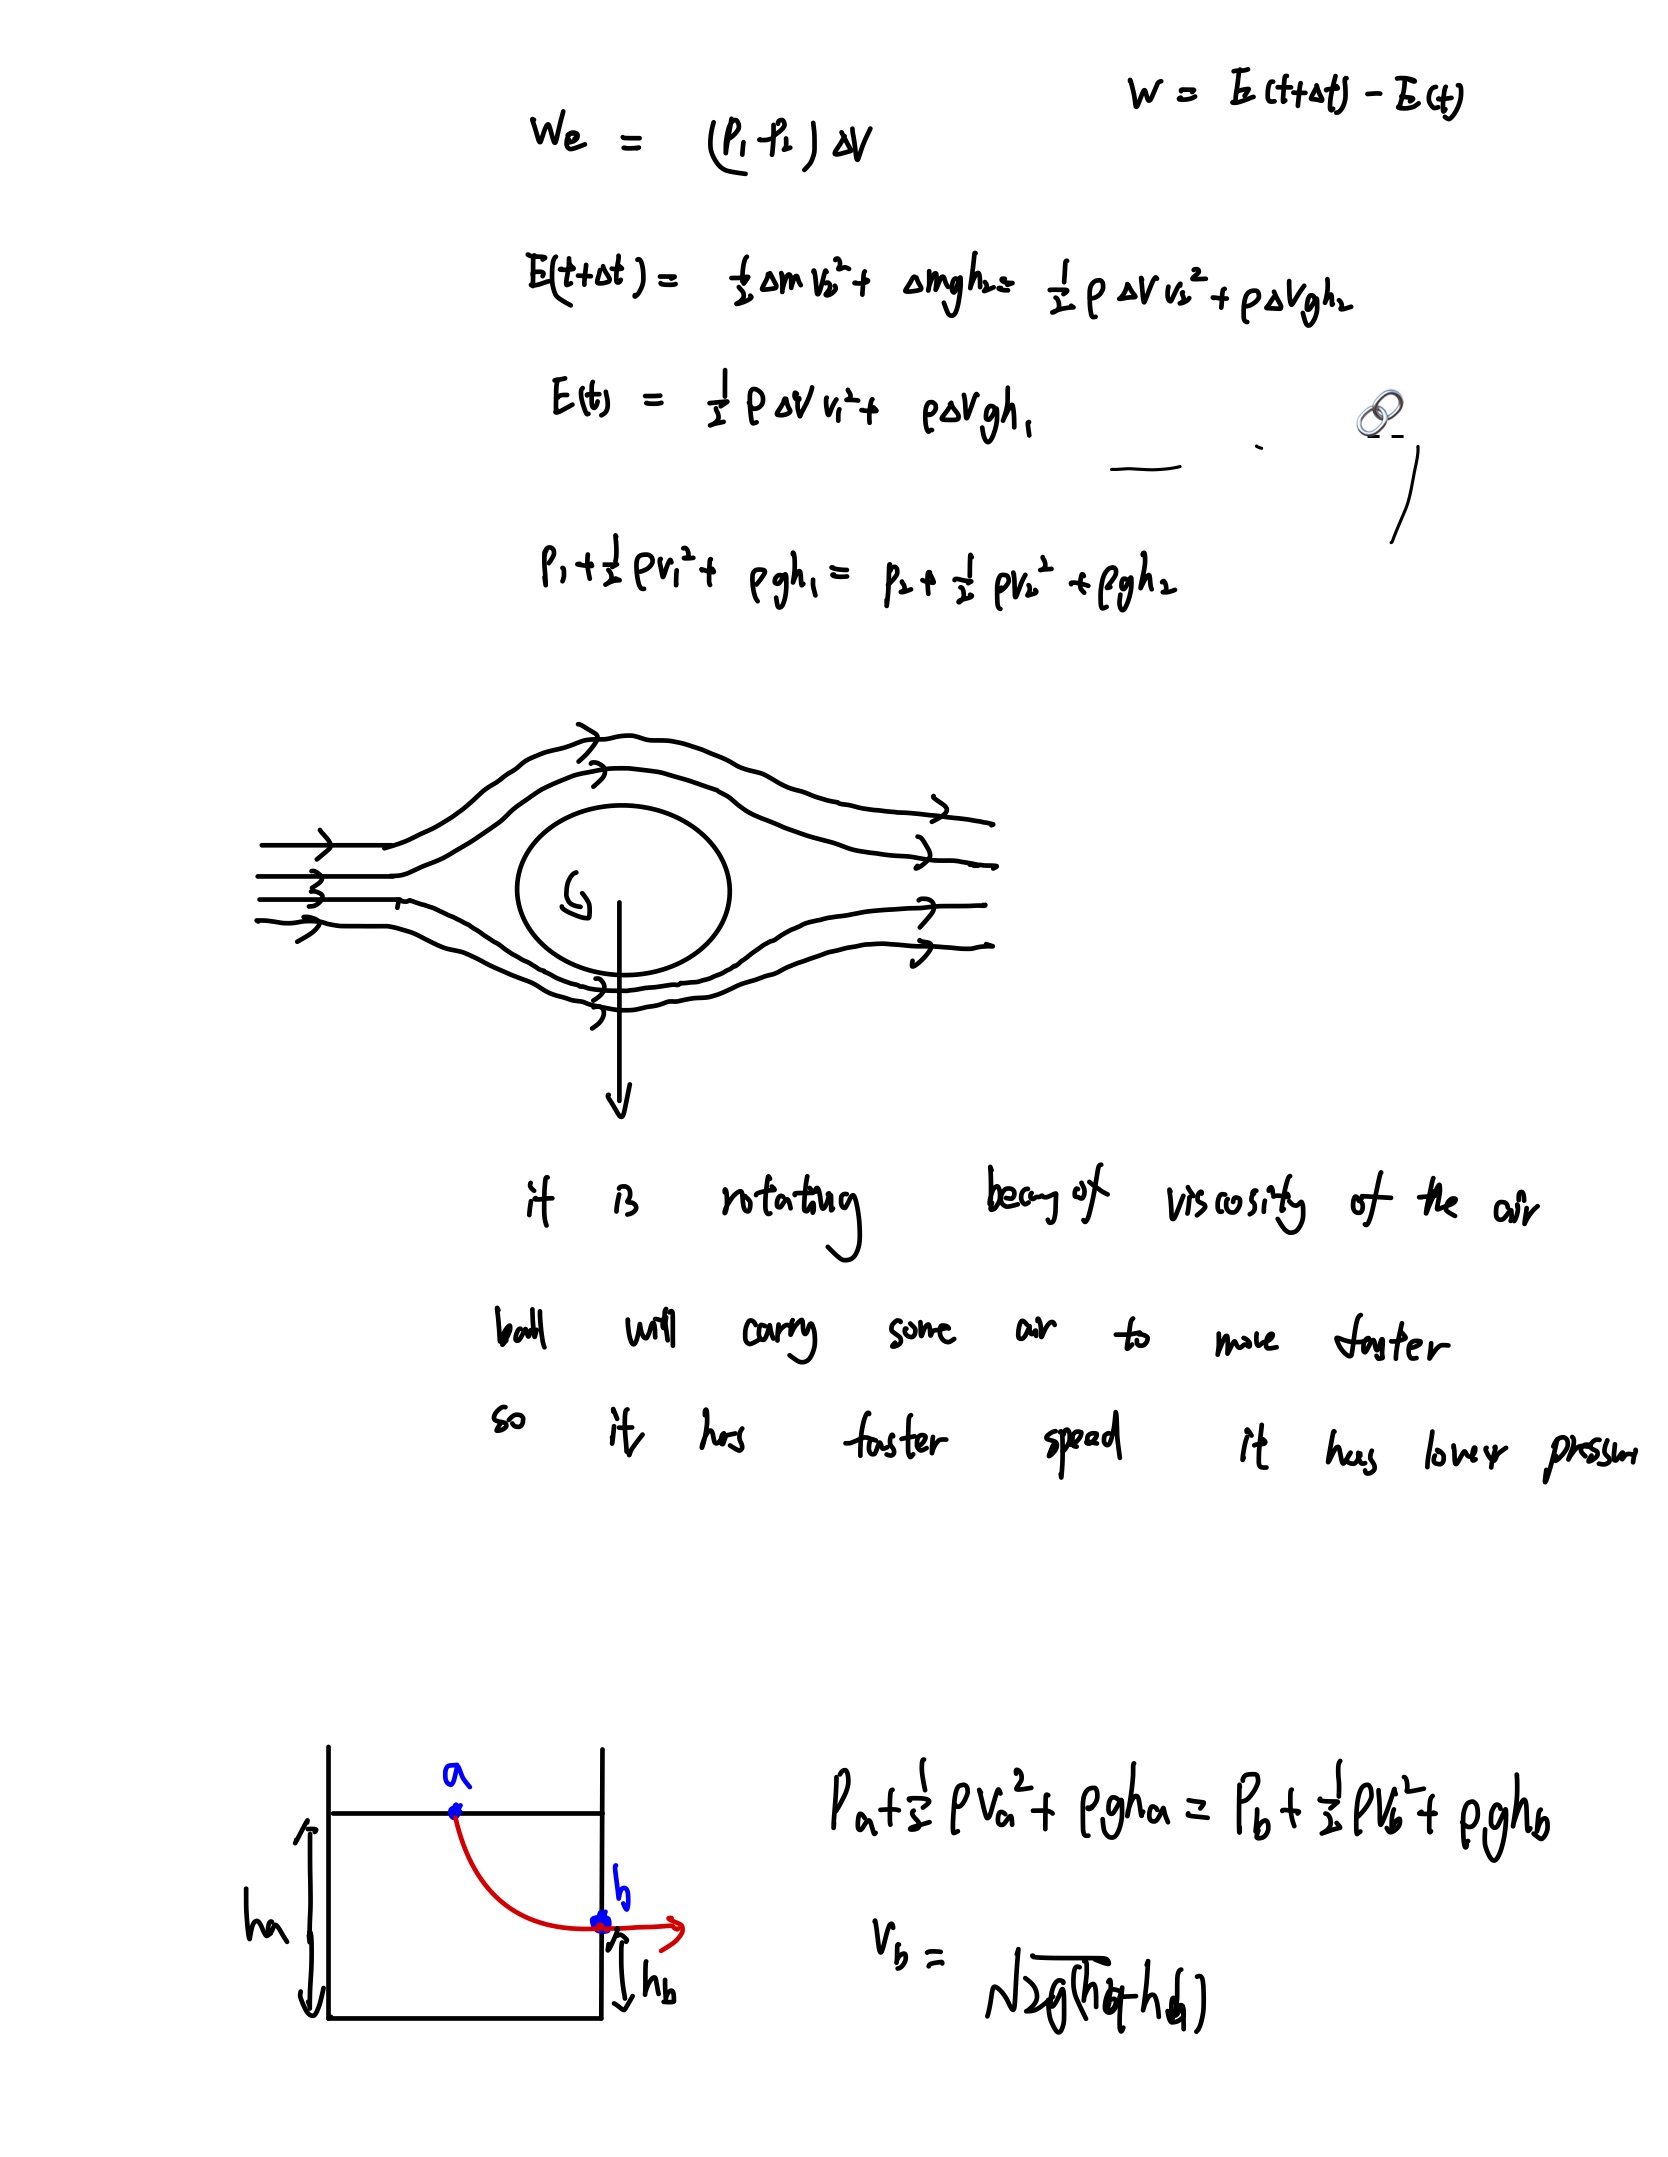 W = E(t+Δt) - E(t)
We = (P₁-P₂) ΔV
E(t+Δt) = ½ Δm v₂² + Δmgh₂ = ½ ρ ΔV v₂² + ρΔVgh₂
E(t) = ½ ρ ΔV v₁² + ρΔVgh₁
P₁ + ½ ρv₁² + ρgh₁ = P₂ + ½ ρv₂² + ρgh₂
it is rotating of viscosity of the air
ball will carry some air to move faster
so it has faster speed it has lower
a
b
ha
hb
Pa + ½ ρVa² + ρgha = Pb + ½ ρVb² + ρghb
Vb =
√2g(